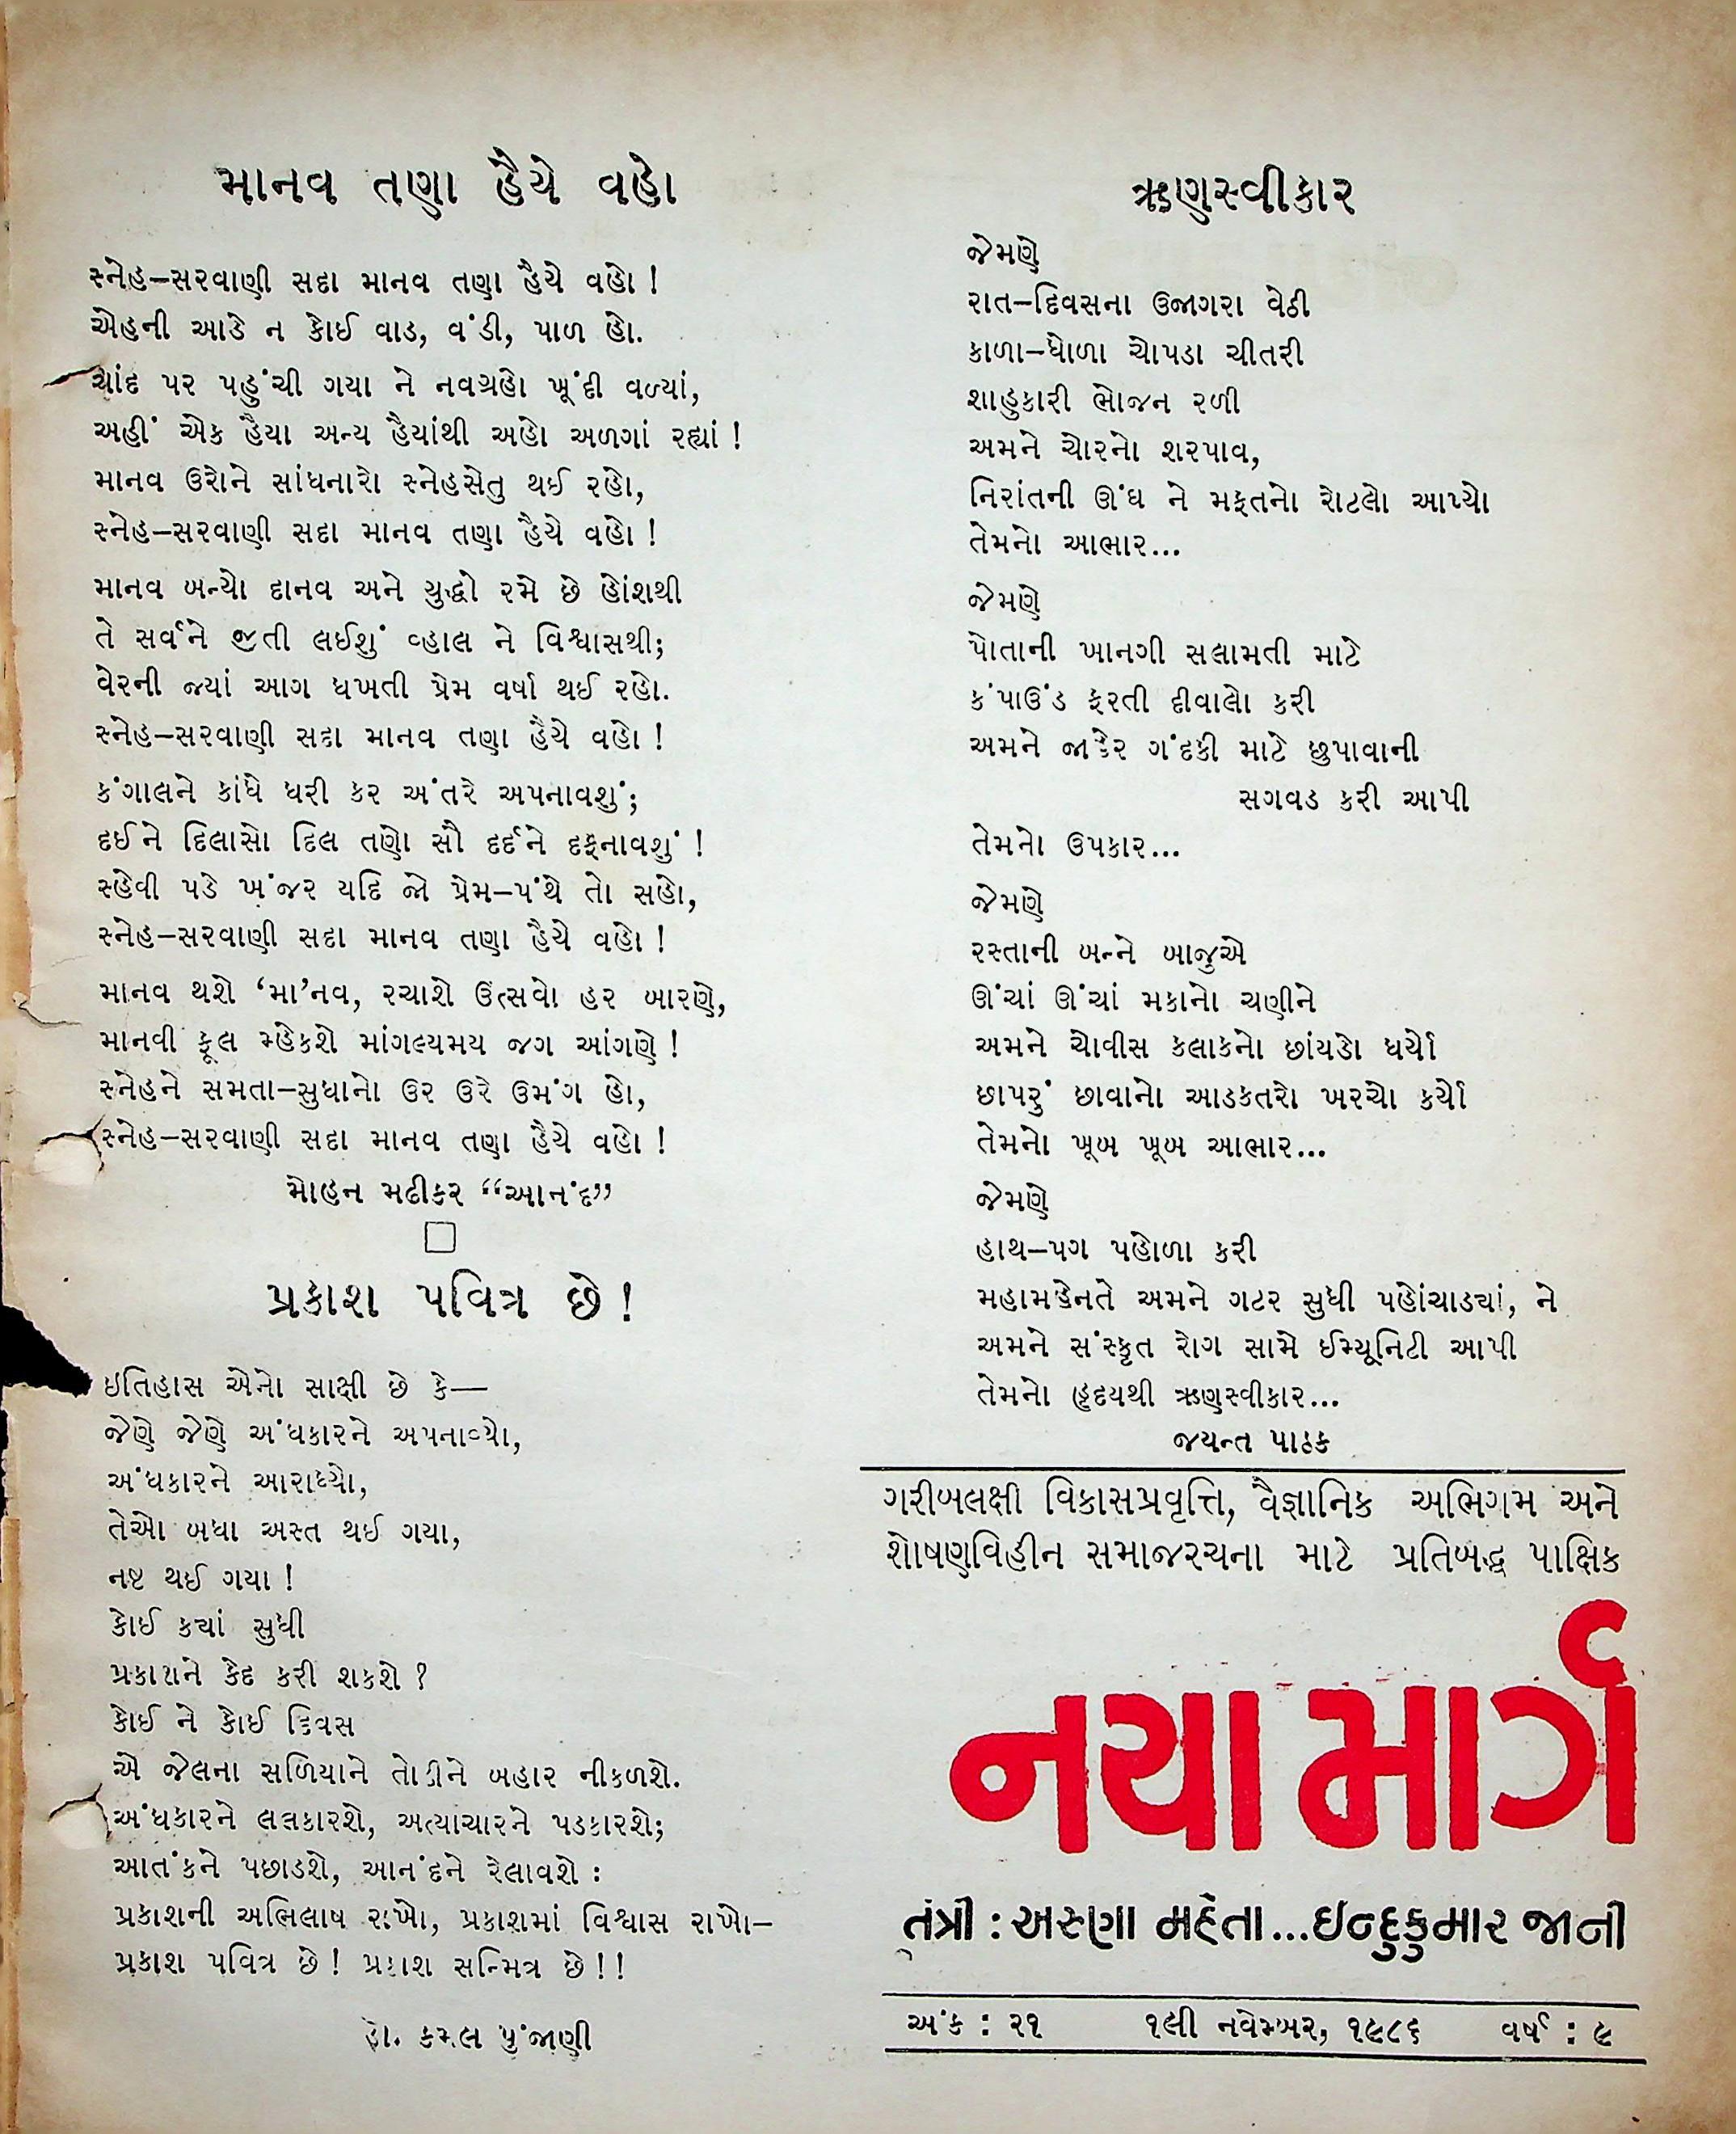 માનવ તણા હૈયે વહો
સ્નેહ–સરવાણી સદા માનવ તણા હૈયે વહો !
એહની આડે ન કોઈ વાડ, વંડી, પાળ હો.
ચાંદ પર પહુંચી ગયા ને નવગ્રહો ખૂંદી વળ્યાં,
અહીં એક હૈયા અન્ય હૈયાંથી અહો અળગાં રહ્યાં !
માનવ ઉરોને સાંધનારો સ્નેહસેતુ થઈ રહો,
સ્નેહ–સરવાણી સદા માનવ તણા હૈયે વહો !
માનવ બન્યો દાનવ અને યુદ્ધો રમે છે હોંશથી
તે સર્વને જીતી લઈશું વ્હાલ ને વિશ્વાસથી;
વેરની જ્યાં આગ ધખતી પ્રેમ વર્ષા થઈ રહો.
સ્નેહ–સરવાણી સદા માનવ તણા હૈયે વહો !
કંગાલને કાંધે ધરી કર અંતરે અપનાવશું;
દઈને દિલાસો દિલ તણો સૌ દર્દને દફનાવશું !
સ્હેવી પડે ખંજર યદિ જો પ્રેમ–પંથે તો સહો,
સ્નેહ–સરવાણી સદા માનવ તણા હૈયે વહો !
માનવ થશે ‘મા’નવ, રચાશે ઉત્સવો હર બારણે,
માનવી ફૂલ મ્હેકશે માંગલ્યમય જગ આંગણે !
સ્નેહને સમતા–સુધાનો ઉર ઉરે ઉમંગ હો,
સ્નેહ–સરવાણી સદા માનવ તણા હૈયે વહો !
મોહન મઢીકર “આનંદ”
પ્રકાશ પવિત્ર છે !
ઇતિહાસ એનો સાક્ષી છે કે—
જેણે જેણે અંધકારને અપનાવ્યો,
અંધકારને આરાધ્યો,
તેઓ બધા અસ્ત થઈ ગયા,
નષ્ટ થઈ ગયા !
કોઈ કયાં સુધી
પ્રકાશને કેદ કરી શકશે ?
કોઈ ને કોઈ દિવસ
એ જેલના સળિયાને તોડીને બહાર નીકળશે.
અંધકારને લલકારશે, અત્યાચારને પડકારશે;
આતંકને પછાડશે, આનંદને રેલાવશે :
પ્રકાશની અભિલાષ રાખો, પ્રકાશમાં વિશ્વાસ રાખો–
પ્રકાશ પવિત્ર છે ! પ્રકાશ સન્મિત્ર છે ! !
ડો. કમલ પુંજાણી
ઋણસ્વીકાર
જેમણે
રાત–દિવસના ઉજાગરા વેઠી
કાળા–ધોળા ચોપડા ચીતરી
શાહુકારી ભોજન રળી
અમને ચોરનો શરપાવ,
નિરાંતની ઊંઘ ને મફતનો રોટલો આપ્યો
તેમનો આભાર...
જેમણે
પોતાની ખાનગી સલામતી માટે
કંપાઉંડ ફરતી દીવાલો કરી
અમને જાહેર ગંદકી માટે છુપાવાની
સગવડ કરી આપી
તેમનો ઉપકાર...
જેમણે
રસ્તાની બન્ને બાજુએ
ઊંચાં ઊંચાં મકાનો ચણીને
અમને ચોવીસ કલાકનો છાંયડો ધર્યો
છાપરું છાવાનો આડકતરો ખરચો કર્યો
તેમનો ખૂબ ખૂબ આભાર...
જેમણે
હાથ–પગ પહોળા કરી
મહામહેનતે અમને ગટર સુધી પહોંચાડયાં, ને
અમને સંસ્કૃત રોગ સામે ઈમ્યૂનિટી આપી
તેમનો હૃદયથી ઋણસ્વીકાર...
જયન્ત પાઠક
ગરીબલક્ષી વિકાસપ્રવૃત્તિ, વૈજ્ઞાનિક અભિગમ અને
શોષણવિહીન સમાજરચના માટે પ્રતિબદ્ધ પાક્ષિક
નયા માર્ગ
તંત્રી : અરુણા મહેતા...ઇન્દુકુમાર જાની
અંક : ૨૧ ૧લી નવેમ્બર, ૧૯૮૬ વર્ષ : ૯